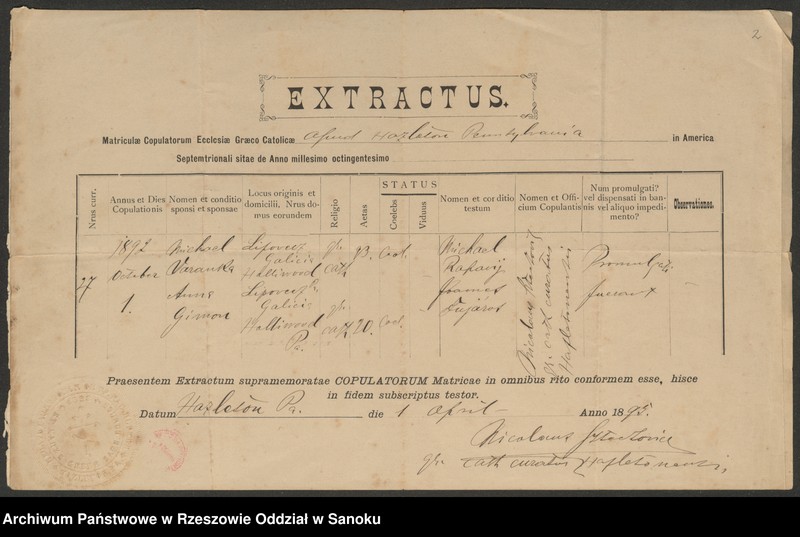 2
EXTRACTUS.
Matriculæ Copulatorum Ecclesiæ Græco Catolicæ apud Hazleton Pennsylvania in America
Septemtrionali sitae de Anno millesimo octingentesimo
Nrus curr.
Annus et Dies Copulationis
Nomen et conditio sponsi et sponsae
Locus originis et domicilii, Nrus domus eorundem
Religio
Aetas
STATUS
Coelebs
Viduus
Nomen et conditio testum
Nomen et Officium Copulantis
Num promulgati? vel dispensati in bannis vel aliquo impedimento?
Observationes.
27
1892
October
1.
Michael
Varanka
Anna
Gimon
Lipovcz
Galicia
Halliwood
Lipovcz
Galicia
Halliwood
Pa.
gr.
cath
gr.
cath
23.
20.
Coel.
Coel.
Michael
Joannes
gr. cath curatus
Promulgati
fuerunt
Praesentem Extractum supramemoratae COPULATORUM Matricae in omnibus rito conformem esse, hisce
in fidem subscriptus testor.
Datum Hazleton Pa. die 1 April Anno 1895.
Nicolaus
gr. cath curatus Hazletonensis.
Archiwum Państwowe w Rzeszowie Oddział w Sanoku